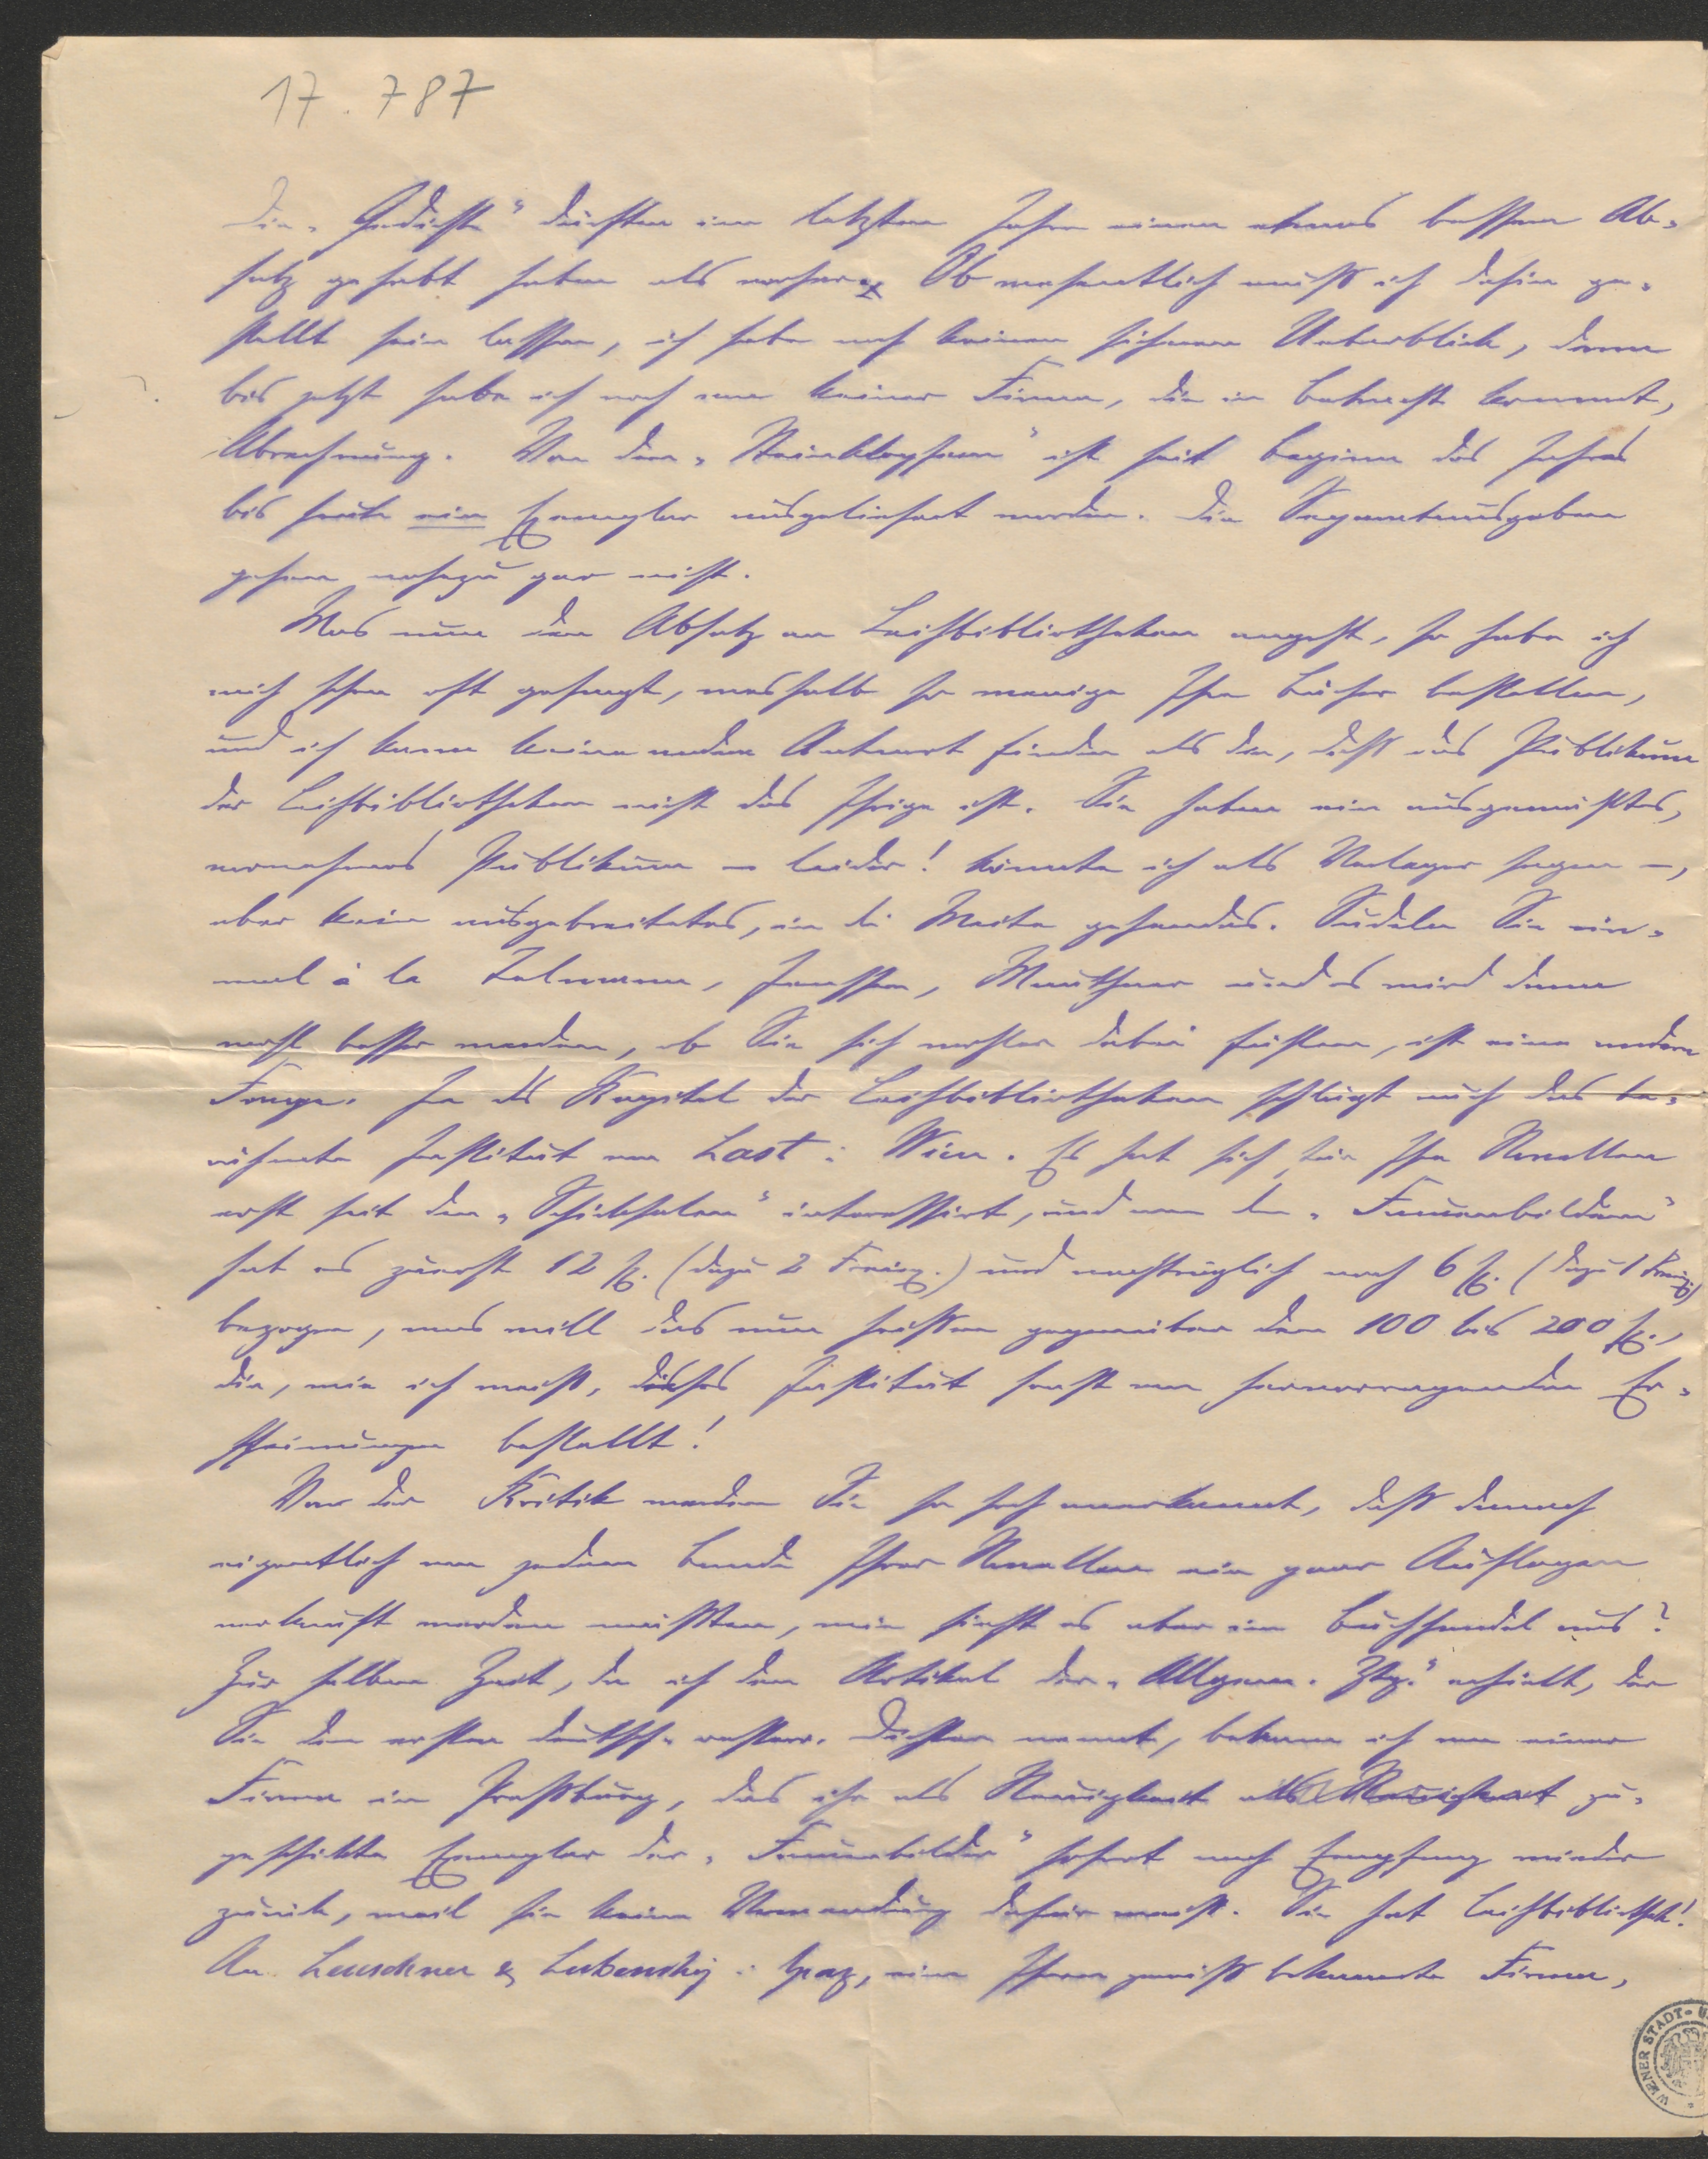 17.787
Die „Gedichte“ dürften im letzten Jahre einen etwas bessern Ab-
satz gehabt haben als vorher. Ob wesentlich muß ich dahin ge-
stellt sein lassen, ich habe noch keinen sichern Ueberblick, denn
bis jetzt habe ich noch von keiner Firma, die in Betracht kommt,
Abrechnung. Von den „Steinklopfern“ ist seit Beginn des Jahres
bis heute ein Exemplar ausgeliefert worden. Die Separatausgaben
gehen nahezu gar nicht.
Was nun den Absatz an Leihbibliotheken angeht, so habe ich
mich schon oft gefragt, weshalb so wenige Ihre Bücher bestellen,
und ich kann keine andere Antwort finden als die, daß das Publikum
der Leihbibliotheken nicht das Ihrige ist. Sie haben ein ausgewähltes,
vornehmes Publikum – leider! könnte ich als Verleger sagen –,
aber kein ausgebreitetes, in die Weite gehendes. Sudeln Sie ein-
mal à la Telmann, Janssen, Mauthner und es wird dann
erst besser werden, ob Sie sich wohler dabei fühlen, ist eine andere
Frage. In das Kapitel der Leihbibliotheken schlägt auch das be-
rühmte Institut von Last i. Wien. Es hat sich für Ihre Novellen
erst seit den „Schicksalen“ interessirt, und von den „Frauenbildern“
hat es zuerst 12 Ex. (dazu 2 Freiex.) und nachträglich noch 6 Ex. (dazu 1 Freiex.)
bezogen, was will das nun heißen gegenüber den 100 bis 200 Ex.,
die, wie ich weiß, dieses Institut sonst von hervorragenden Er-
scheinungen bestellt!
Von der Kritik werden Sie so hoch anerkannt, daß darnach
eigentlich von jedem Bande Ihrer Novellen ein paar Auflagen
verkauft werden müßten, wie sieht es aber im Buchhandel aus?
Zur selben Zeit, da ich den Artikel der „Allgem. Ztg.“ erhielt, der
Sie den ersten deutsch-österr. Dichter nennt, bekam ich von einer
Firma in Preßburg, das ihr als Neuigkeit zu-
geschickte Exemplar der „Frauenbilder“ sofort nach Empfang wieder
zurück, weil sie keine Verwendung dafür weiß. Sie hat Leihbibliothek!
An Leuschner & Lubensky i. Graz, eine Ihnen gewiß bekannte Firma,
WIENER STADT-